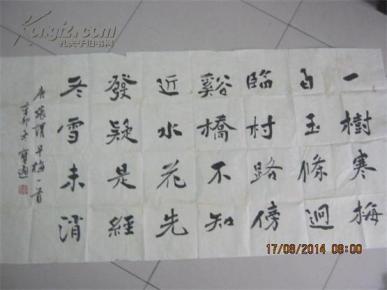 一樹寒梅
白玉條迥
臨村路傍
谿橋不知
近水花先
發疑是經
冬雪未消
唐張謂早梅一首
辛卯
kongfz.com
孔夫子旧书网
17/08/2014 08:00